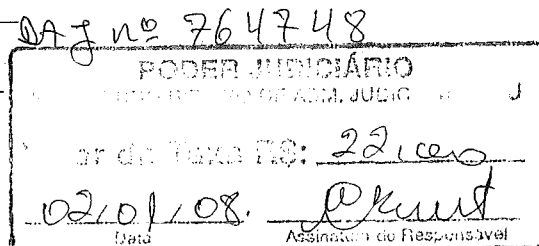 DAJ nº 764748
PODER JUDICIÁRIO
DE ADM. JUDIC J
de Taxa R$: 22,00
02/01/08.
Data Assinatura do Responsável